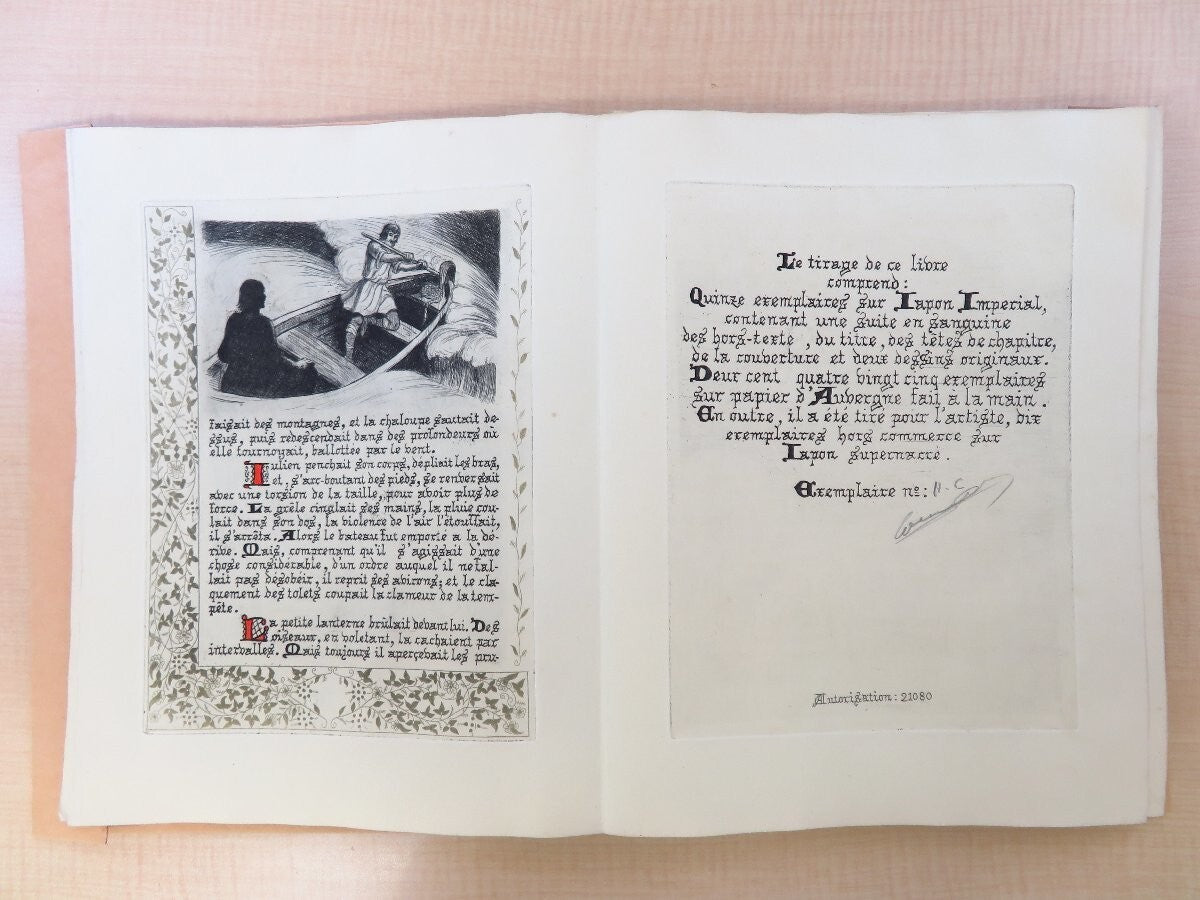 faisait des montagnes, et la chaloupe sautait de-
ssus, puis redescendait dans des profondeurs où
elle tournoyait, ballottée par le vent.
Julien penchait son corps, dépliait les bras,
et, s'arc-boutant des pieds, se renversait
avec une torsion de la taille, pour avoir plus de
force. La grêle cinglait ses mains, la pluie cou-
lait dans son dos, la violence de l'air l'étouffait,
il s'arrêta. Alors le bateau fut emporté a la dé-
rive. Mais, comprenant qu'il s'agissait d'une
chose considérable, d'un ordre auquel il ne fal-
lait pas désobéir, il reprit ses avirons; et le cla-
quement des tolets coupait la clameur de la tem-
pête.
La petite lanterne brûlait devant lui. Des
oiseaux, en voletant, la cachaient par
intervalles. Mais toujours il apercevait les pru-
Le tirage de ce livre
comprend:
Quinze exemplaires sur Japon Imperial,
contenant une suite en sanguine
des hors-texte, du titre, des têtes de chapitre,
de la couverture et deux dessins originaux.
Deux cent quatre vingt cinq exemplaires
sur papier d'Auvergne fait a la main.
En outre, il a été tiré pour l'artiste, dix
exemplaires hors commerce sur
Japon supernacré.
Exemplaire nº: H.C
Autorisation: 21080